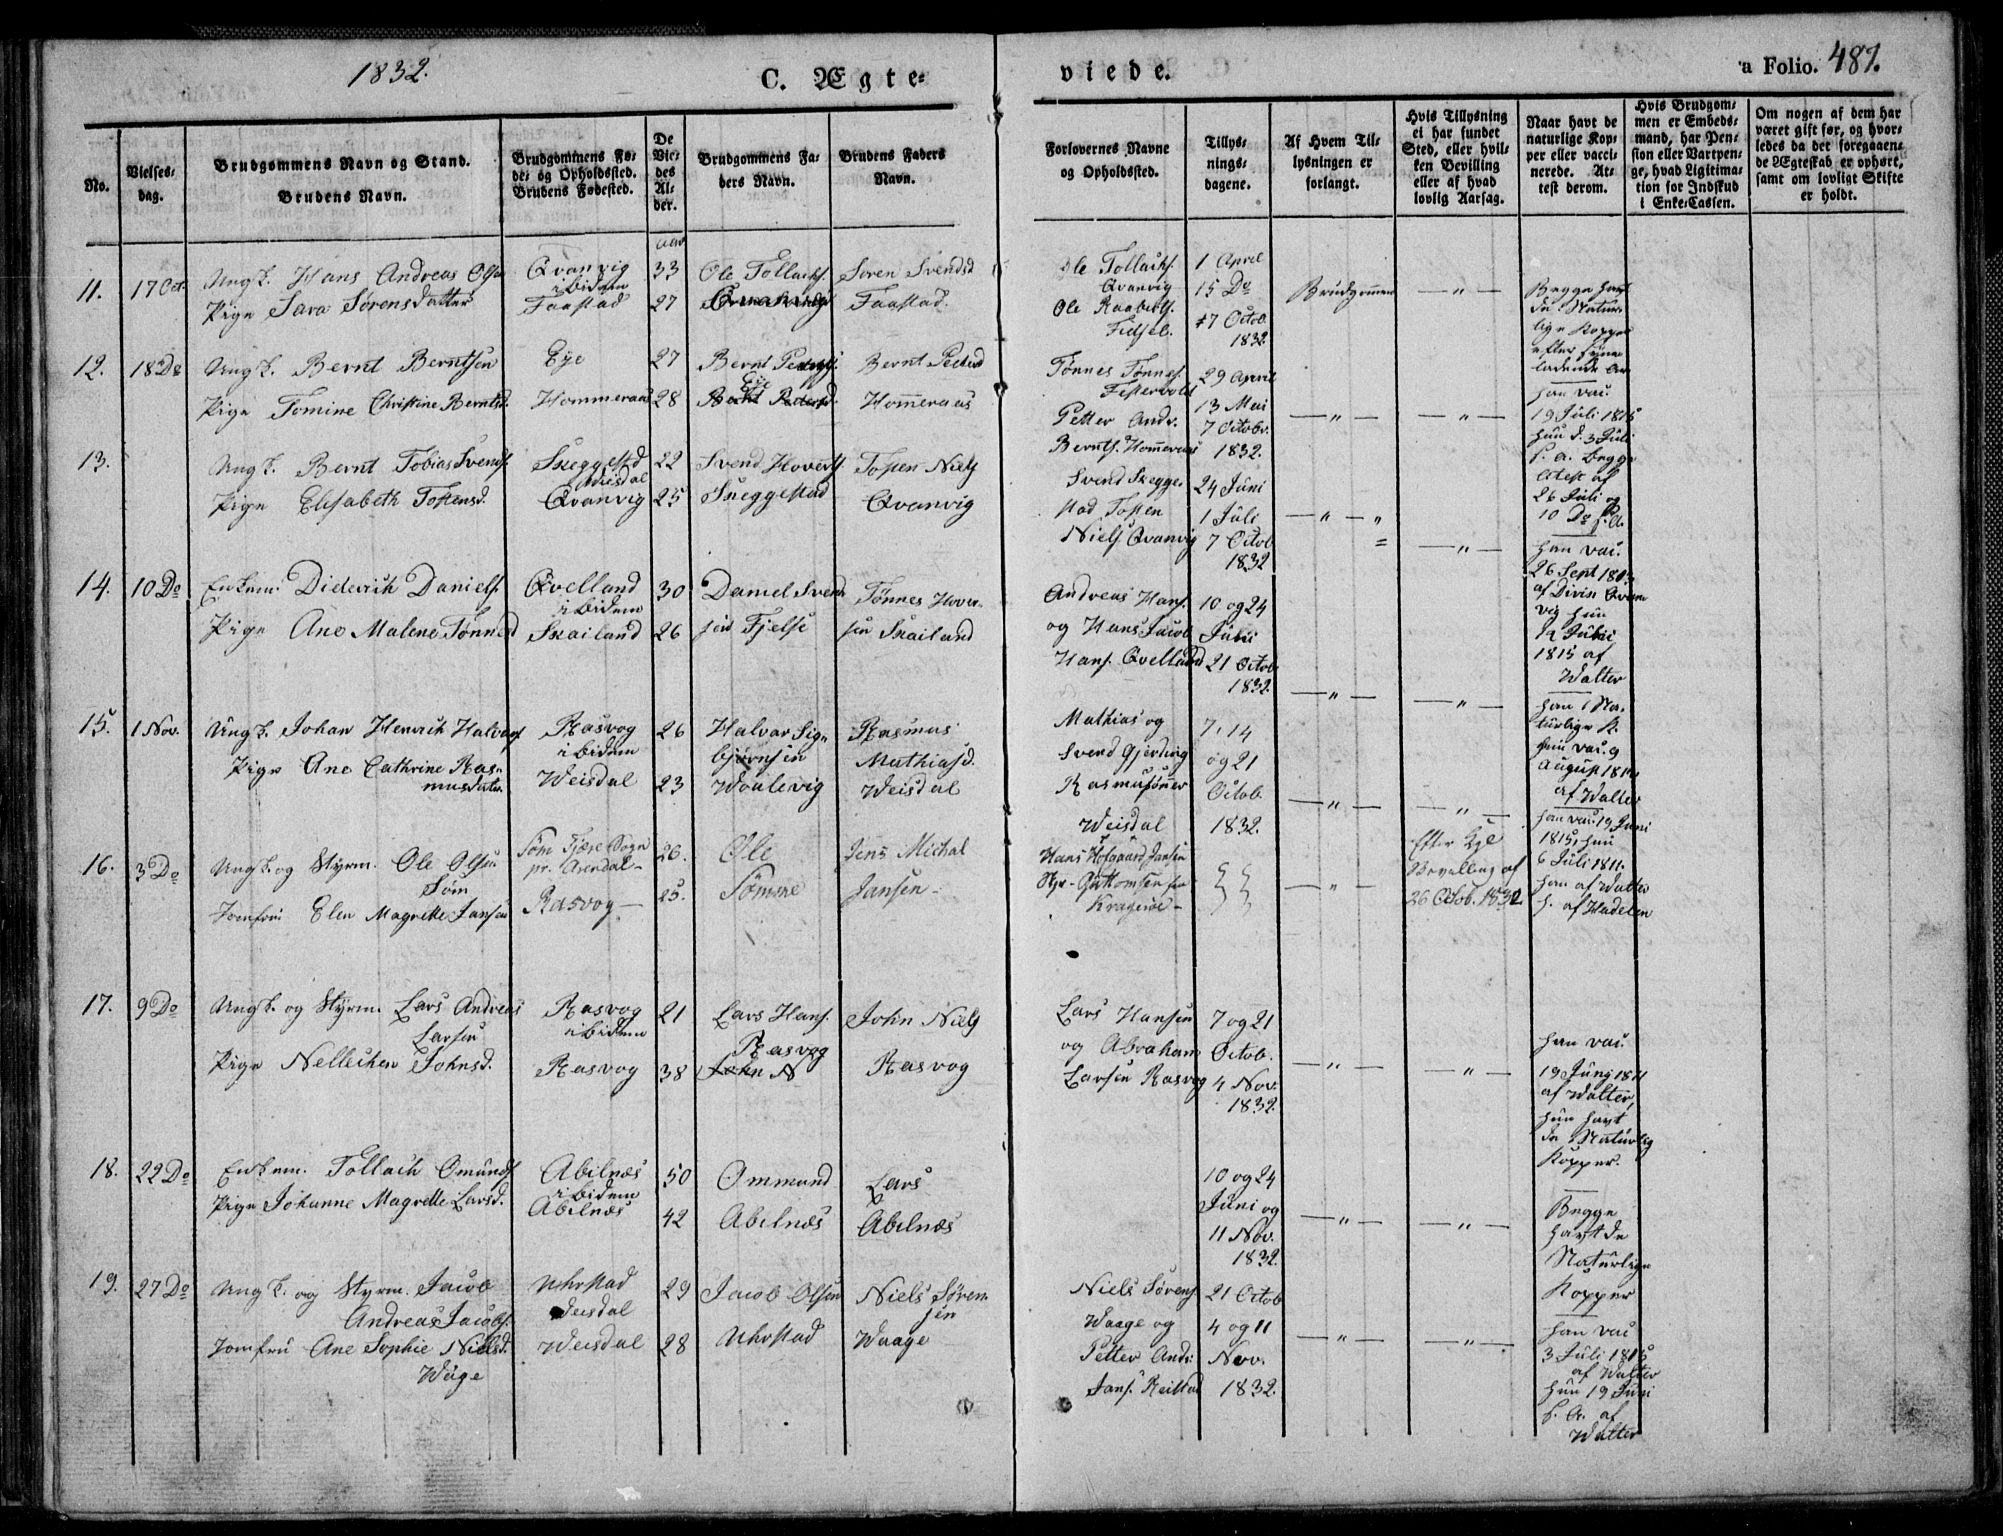 1832.
C. Ægte-
viede.
a Folio. 487.
No.
Vielses-
dag.
Brudgommens Navn og Stand.
Brudens Navn.
Brudgommens Fø-
de- og Opholdssted.
Brudens Fødested.
De
Vie-
des
Al-
der.
Brudgommens Fa-
ders Navn.
Brudens Faders
Navn.
Forlovernes Navne
og Opholdssted.
Tillys-
nings-
dagene.
Af Hvem Til-
lysningen er
forlangt.
Hvis Tillysning
ei har fundet
Sted, eller hvil-
ken Bevilling
eller af hvad
lovlig Aarsag.
Naar havt de
naturlige Kop-
per eller vacci-
nerede. At-
test derom.
Hvis Brudgom-
men er Embeds-
mand, har Pen-
sion eller Vartpen-
ge, hvad Ligitima-
tion for Indskud
i Enke-Cassen.
Om nogen af dem har
været gift før, og hvor-
ledes da det foregaaen-
de Ægteskab er ophørt,
samt om lovligt Skifte
er holdt.
11. 17 Oct.
Ungk. Hans Andreas Olsen
Pige Sara Sørensdatter
Qvanvig
ibidem
Faastad
aar
33
27
Ole Tollachs.
Søren Svendsd
Faastad.
Ole Tollachs.
Qvanvig
Ole
Fidsel.
1 April
15 Do
7 Octob.
1832.
Brudgommen
— " —
Begge havt
de Natur-
lige Kopper
efter
ladende
12. 18 Do
Ungk. Bernt Berntsen
Pige Tomine Christine Berntsd.
Eye
Hommeraas
27
28
Bernt Peders.
Eye
Bernt Pedersd
Hommeraas
Tønnes Tønnes.
Petter Andr.
Bernts. Hommeraas
29 April
13 Mai
7 Octobr.
1832.
— " —
— " —
han vac.
19 Juli 1815
hun d. 3 Juli
s. a. begge
Atest af
13.
Ungk. Bernt Tobias Svends.
Pige Elisabeth Tostensd.
Skeggestd
Weisdal
Qvanvig
22
25
Svend Hoverts.
Skeggestad
Tosten Niels
Qvanvig
Svend Skegge-
stad Tosten
Niels Qvanvig
24 Juni
1 Juli
7 Octob
1832
— " — "
— " —
26 Juli og
10 Do s. A.
14. 10 Do
Enkem. Diderich Daniels.
Pige Ane Malene Tønnesd
Qvelland
ibidem
Skailand
30
26
Daniel Svend
sen Fjelse
Tønnes Hover-
sen Skailand
Andreas Hans.
og Hans Jacob
Hans. Qvelland
10 og 24
Juni
21 Octob
1832.
— " —
— " —
han vac.
26 Sept 1813
af Qvan
vig hun
12 Juli
1815 af
Walter
15. 1 Nov.
Ungk. Johan Henrich Halvors.
Pige Ane Cathrine Ras-
musdatter
Rasvog
ibidem
Weisdal
26
23
Halvar Sig-
bjørnsen
Woulevig
Rasmus
Mathiasd.
Weisdal
Mathias og
Svend Gjerding
Rasmusønner
Weisdal
7, 14
og 21
Octob.
1832.
— " —
— " —
han Na-
turlige K.
hun vac. 9
August 1811
af Walter
16. 3 Do
Ungk. og Styrm. Ole Olsen
Søm
Jomfru Elen Magrette Jansen
Søm Fjære Sogn
pr. Arendal -
Rasvog -
26.
25.
Ole
Tømme
Jens Michal
Jansen -
Hans Hofgaard Jansen
Hr. Guttomsen fra
Kragerøe -
— " —
Efter Kgl
Bevilling af
26 Octob. 1832
han vac. 19 Juni
1815, hun
6 Juli 1811.
han af Walter
h. af Hadelen
17. 9 Do
Ungk. og Styrm. Lars Andreas
Larsen
Pige Nellechen Johnsd.
Rasvog
ibidem
Rasvog
21
38
Lars Hans.
Rasvog
John N
John Niels
Rasvog
Lars Hansen
og Abraham
Larsen Rasvog
7 og 21
Octob.
4 Nov.
1832.
— " —
— " —
han vac.
19 Juny 1811
af Walter,
hun havt
de Naturlig
Kopper.
18. 22 Do
Enkem. Tollach Omunds.
Pige Johanne Magrette Larsd.
Abelnæs
ibidem
Abelnæs
50
42
Ommund
Abelnæs
Lars
Abelnæs
10 og 24
Juni og
11 Nov.
1832.
— " —
— " —
Begge
havt de
Naturlige
Kopper
19. 27 Do
Ungk. og Styrm. Jacob
Andreas Jacobs.
Jomfru Ane Sophie Nielsd.
Wage
Uhrstad
Weisdal
Weisdal
29
28
Jacob Olsen
Uhrstad
Niels Søren-
sen
Waage
Niels Sørens.
Waage og
Petter Andr.
Jans. Reistad
21 Octob
4 og 11
Nov.
1832.
— " —
— " —
han vac
3 Juli 1815
af Walter
hun 19 Juni
s. A. af
Walter